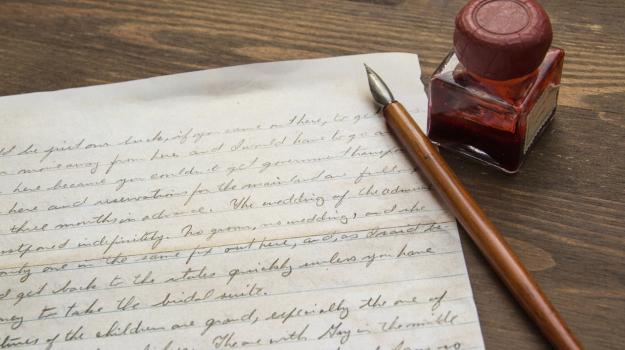 be just our luck, if you came out here, to get
move away from here and I would have to go
here because you couldn't get government
here and reservations for the mainland are full
three months in advance. The wedding of the
postponed indefinitely. No groom, no wedding, and she
only one in the same fix out here, and, as I said
get back to the states quickly unless you have
to take the bridal suite.
of the children are grand, especially the one of
The one with Gay in the middle